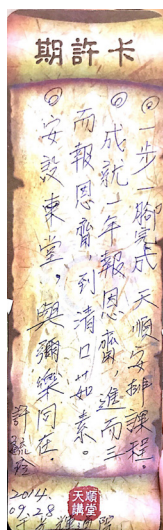 期許卡
◎一步一腳完成天順安排課程.
◎成就一年報恩齋，進而三
而報恩齋，到清口茹素。
◎安設東堂，與彌樂同在
許毓
2014.
09.28
天順
講堂